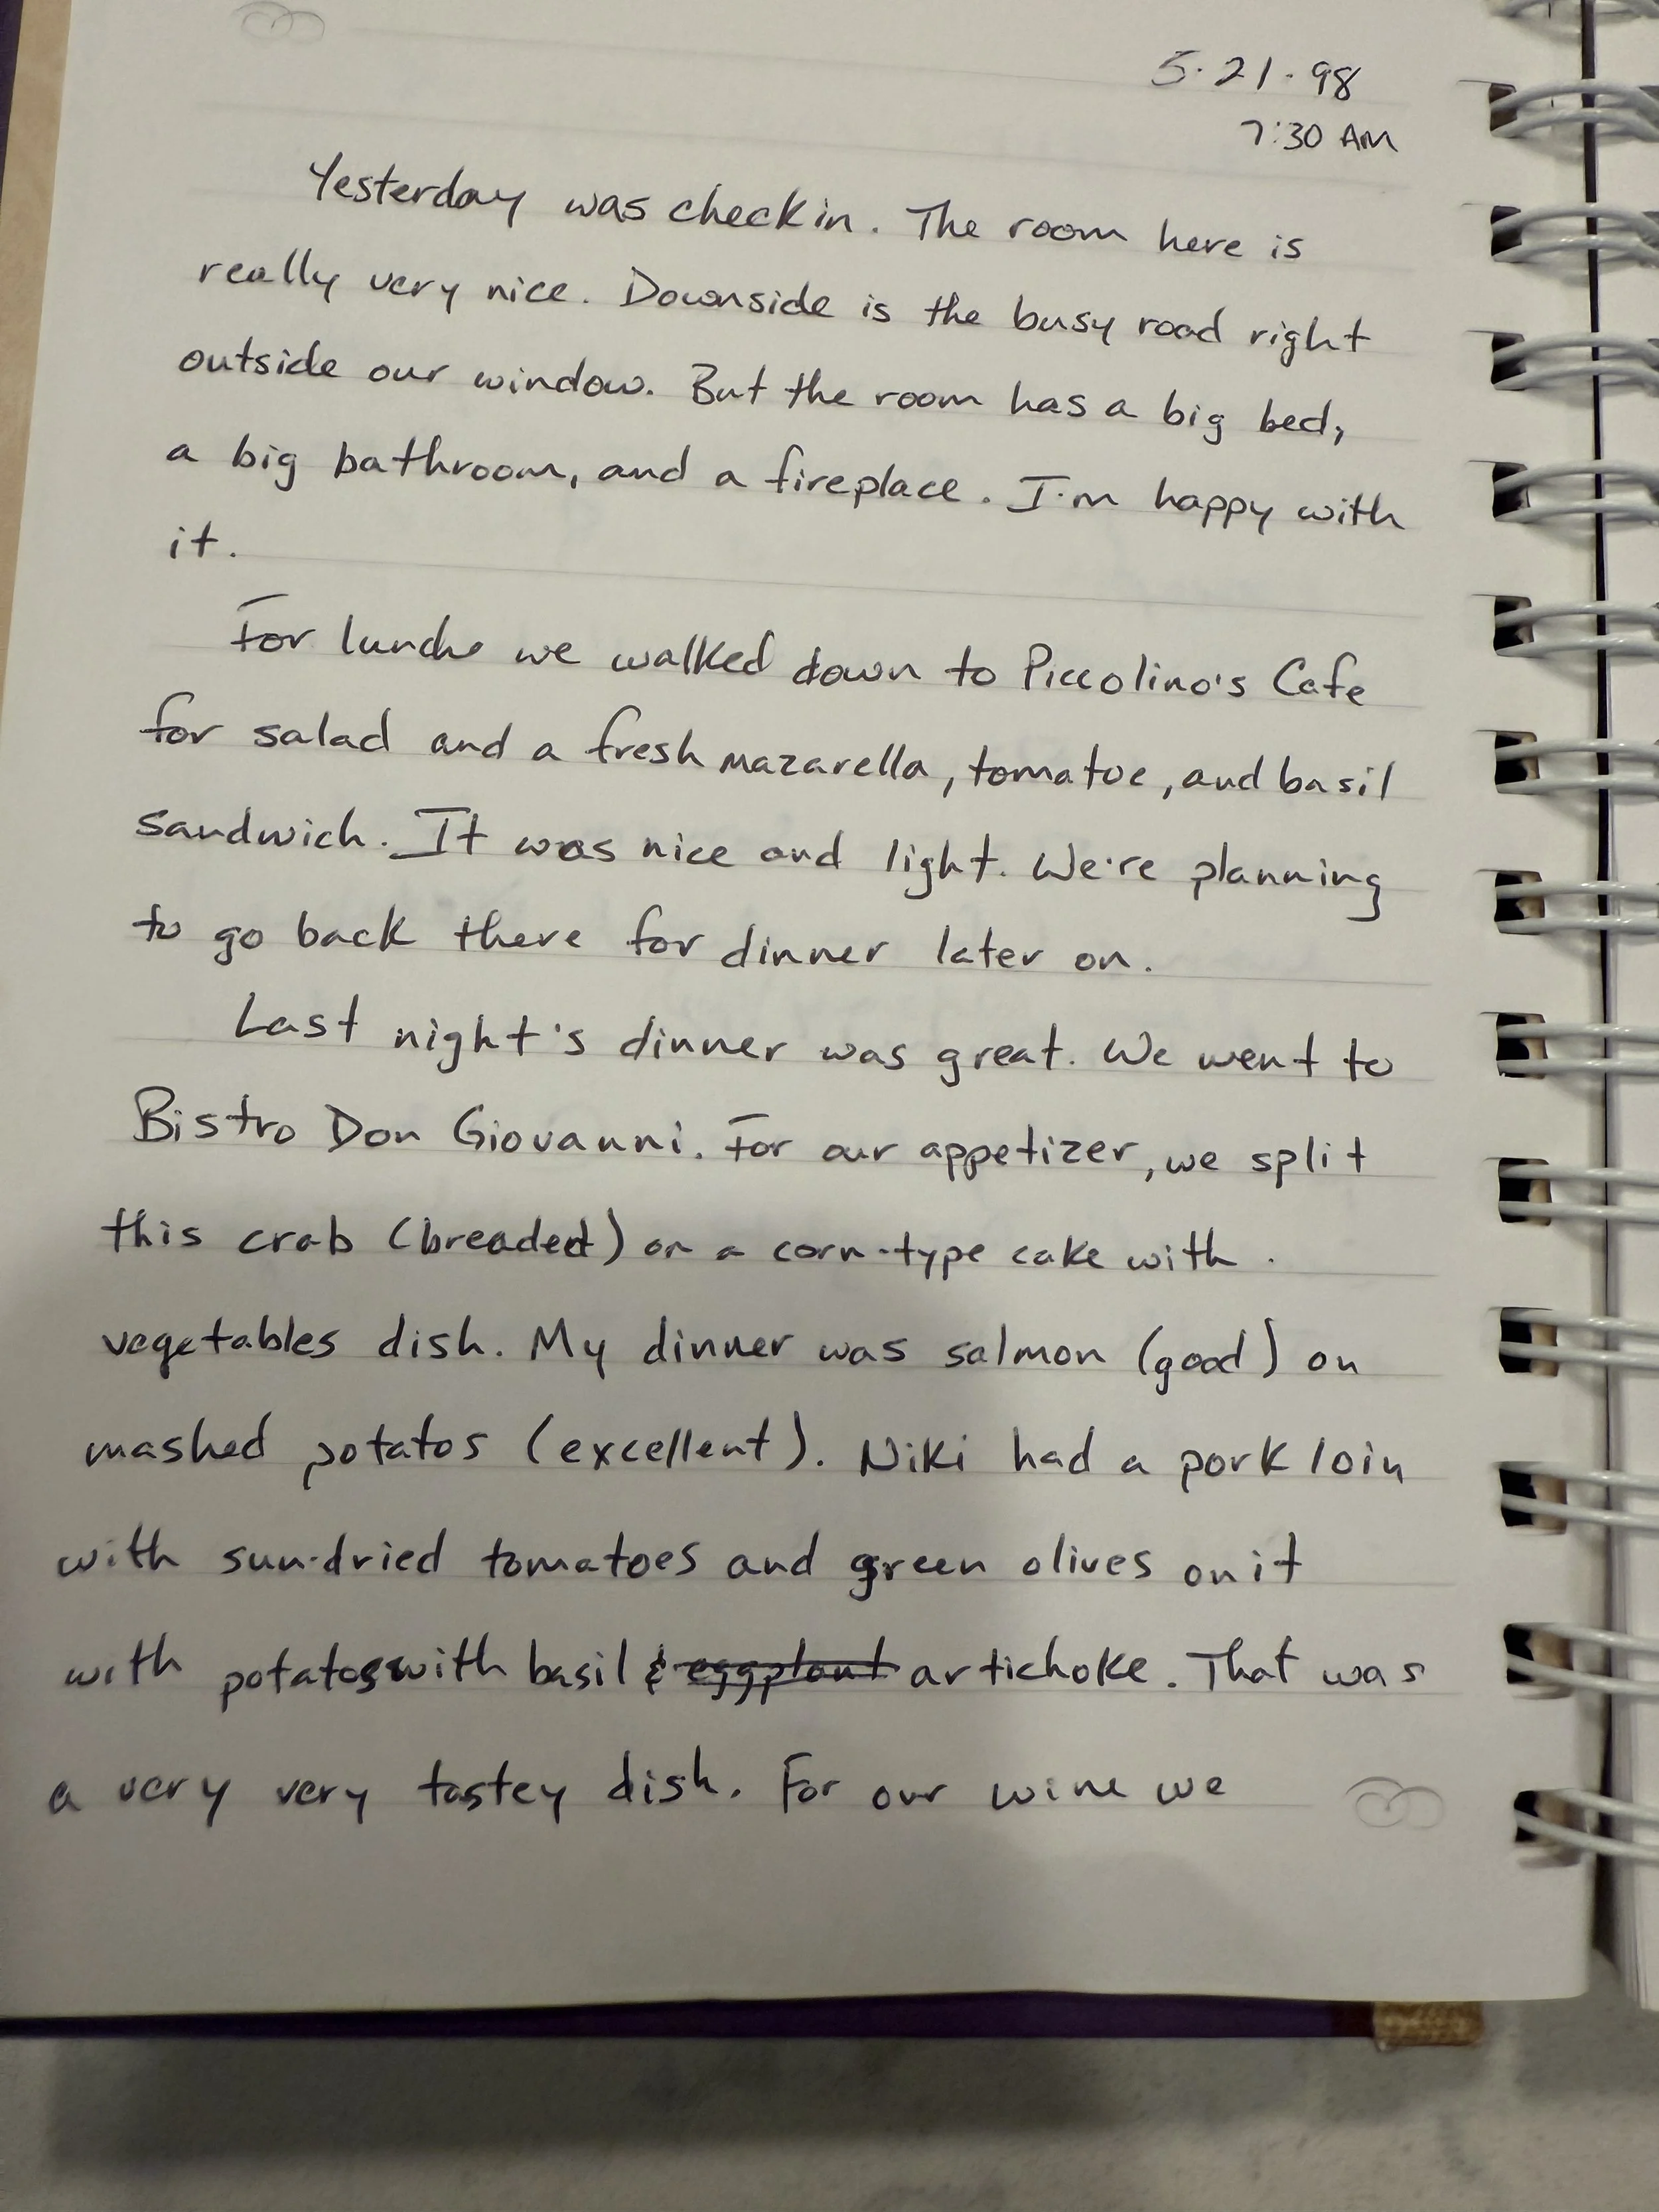 5.21.98
7:30 AM
Yesterday was check in. The room here is
really very nice. Downside is the busy road right
outside our window. But the room has a big bed,
a big bathroom, and a fireplace. I'm happy with
it.
For lunch we walked down to Piccolino's Cafe
for salad and a fresh mazarella, tomatoe, and basil
sandwich. It was nice and light. We're planning
to go back there for dinner later on.
Last night's dinner was great. We went to
Bistro Don Giovanni. For our appetizer, we split
this crab (breaded) on a corn-type cake with
vegetables dish. My dinner was salmon (good) on
mashed potatos (excellent). Niki had a pork loin
with sun-dried tomatoes and green olives on it
with potatoes with basil & eggplant artichoke. That was
a very very tastey dish. For our wine we